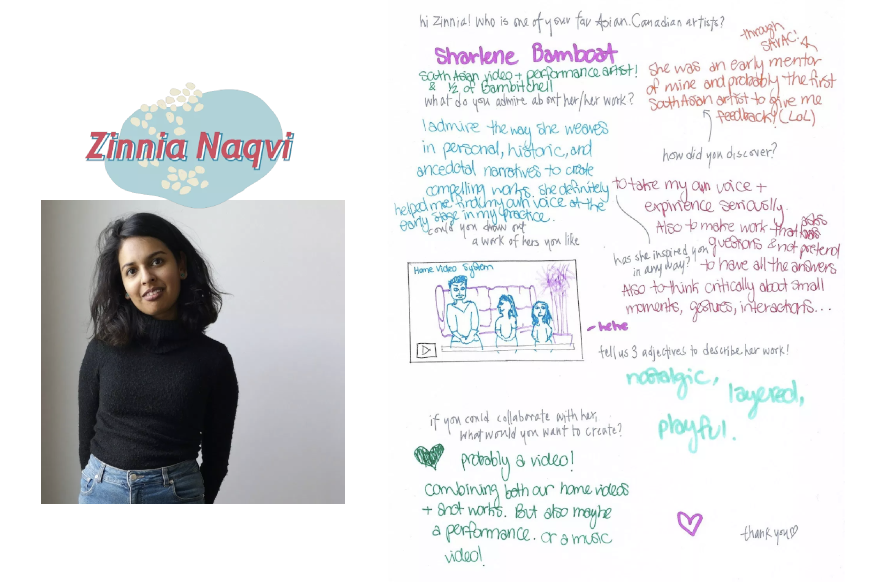 Zinnia Naqvi
hi Zinnia! who is one of your fav Asian.Canadian artists?
Sharlene Bamboat
South Asian video + performance artist!
& 1/2 of Bambitchell
what do you admire about her/her work?
I admire the way she weaves
in personal, historic, and
anecdotal narratives to create
compelling works. She definitely
helped me find my own voice at the
early stage in my practice.
could you draw out
a work of hers you like
Home Video System
- hehe
if you could collaborate with her,
what would you want to create?
probably a video!
combining both our home videos
+ shot works. But also maybe
a performance. Or a music
video!
through
SAVAC!
She was an early mentor
of mine and probably the first
South Asian artist to give me
feedback! (LOL)
how did you discover?
to take my own voice +
experience seriously.
Also to make work that asks
questions & not pretend
to have all the answers
has she inspired you
in any way?
Also to think critically about small
moments, gestures, interactions...
tell us 3 adjectives to describe her work!
nostalgic,
layered,
playful.
thank you